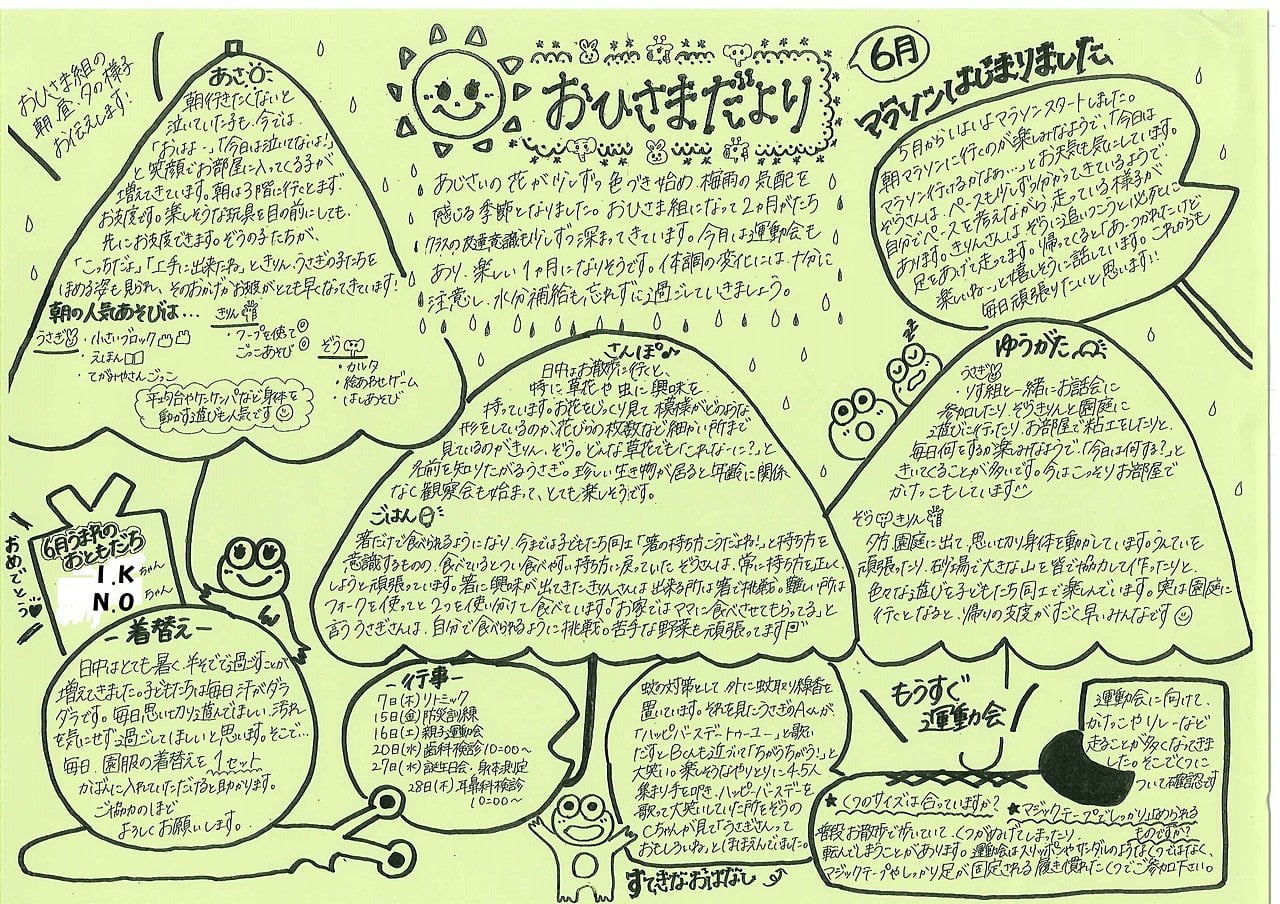 おひさま組の
朝・昼・夕の様子
お伝えします!
あさ
朝行きたくないと
泣いていた子も、今では、
「おはよー」「今日は泣いてないよ!」
と笑顔でお部屋に入ってくる子が
増えてきています。朝は3階に行くとまず、
お支度です。楽しそうな玩具を目の前にしても、
先にお支度できます。ぞうの子たちが、
「こっちだよ」「上手に出来たね」ときりん、うさぎの子たちを
ほめる姿も見られ、そのおかげかお支度がとても早くなってきています!
朝の人気あそびは...
うさぎ
・小さいブロック
・えほん
・てがみやさんごっこ
きりん
・フープを使って
ごっこあそび
ぞう
・カルタ
・絵あわせゲーム
・はしあそび
平均台やケンケンパなど身体を
動かす遊びも人気です
おひさまだより
6月
あじさいの花が少しずつ色づき始め、梅雨の気配を
感じる季節となりました。おひさま組になって2ヵ月がたち
クラスの友達意識も少しずつ深まってきています。今月は運動会も
あり、楽しい1ヵ月になりそうです。体調の変化には十分に
注意し、水分補給も忘れずに過ごしていきましょう。
マラソンはじまりました
5月からいよいよマラソンスタートしました。
朝マラソンに行くのが楽しみなようで、「今日は
マラソン行けるかなぁ...」とお天気も気にしています。
ぞうさんは、ペースも少しずつ分かってきているようで
自分でペースを考えながら走っている様子が
あります。きりんさんは、ぞうに追いつこうと必死に
足をあげて走ってます。帰ってくると「あーつかれたけど
楽しいねっ」と嬉しそうに話しています。これからも
毎日頑張りたいと思います!!
さんぽ♪
日中はお散歩に行くと、
特に草花や虫に興味を
持っています。お花をじっくり見て模様がどのような
形をしているのか花びらの枚数など細かい所まで
見ているのがきりん、ぞう。どんな草花でも「これなーに?」と
名前を知りたがるうさぎ。珍しい生き物が居ると年齢に関係
なく観察会も始まって、とても楽しそうです。
ごはん
箸だけで食べられるようになり、今までは子どもたち同士「箸の持ち方こうだよね!」と持ち方を
意識するものの、食べているとつい食べやすい持ち方に戻っていたぞうさんは、常に持ち方を正しく
しようと頑張っています。箸に興味が出てきたきりんさんは出来る所は箸で挑戦。難しい所は
フォークを使ってと2つを使い分けて食べています。「お家ではママに食べさせてもらってる」と
言ううさぎさんは、自分で食べられるように挑戦。苦手な野菜も頑張ってます
ゆうがた
うさぎ
・りす組と一緒にお話会に
参加したり、ぞうきりんと園庭に
遊びに行ったり、お部屋で粘土をしたりと、
毎日何をするか楽しみなようで、「今日は何する?」と
きいてくることが多いです。今はこっそりお部屋で
かけっこもしています
ぞう きりん
夕方、園庭に出て、思い切り身体を動かしています。うんていを
頑張ったり、砂場で大きな山を皆で協力して作ったりと、
色々な遊びを子どもたち同士で楽しんでいます。実は園庭に
行くとなると、帰りの支度がすごく早いみんなです
6月うまれの
おともだち
I.Kちゃん
N.Oちゃん
おめでとう
-着替え-
日中はとても暑く、半そでで過ごすことが
増えてきました。子どもたちは毎日汗がダラ
ダラです。毎日思い切り遊んでほしい、汚れ
を気にせず過ごしてほしいと思います。そこで...
毎日、園服の着替えを1セット
かばんに入れていただけると助かります。
ご協力のほど
よろしくお願いします。
-行事-
7日(木)リトミック
15日(金)防災訓練
16日(土)親子運動会
20日(水)歯科検診10:00〜
27日(水)誕生日会・身体測定
28日(木)耳鼻科検診
10:00〜
蚊の対策として、外に蚊取り線香を
置いています。それを見たうさぎのAくんが、
「ハッピバースデートゥーユー」と歌い
だすとBくんも近づいて「ちがうちがう!」と
大笑い。楽しそうなやりとりに4.5人
集まり手を叩き、ハッピーバースデーを
歌って大笑いしていた所をぞうの
Cちゃんが見て「うさぎさんって
おもしろいね」とほほえんでました。
すてきなおはなし
もうすぐ
運動会
運動会に向けて、
かけっこやリレーなど
走ることが多くなってきま
した。そこでくつに
ついて確認です
★くつのサイズは合っていますか?
★マジックテープでしっかり止められる
ものですか?
普段お散歩で歩いていて、くつがぬげてしまったり、
転んでしまうことがあります。運動会はスリッポンやサンダルのようなくつではなく、
マジックテープやしっかり足が固定される履き慣れたくつでご参加下さい。